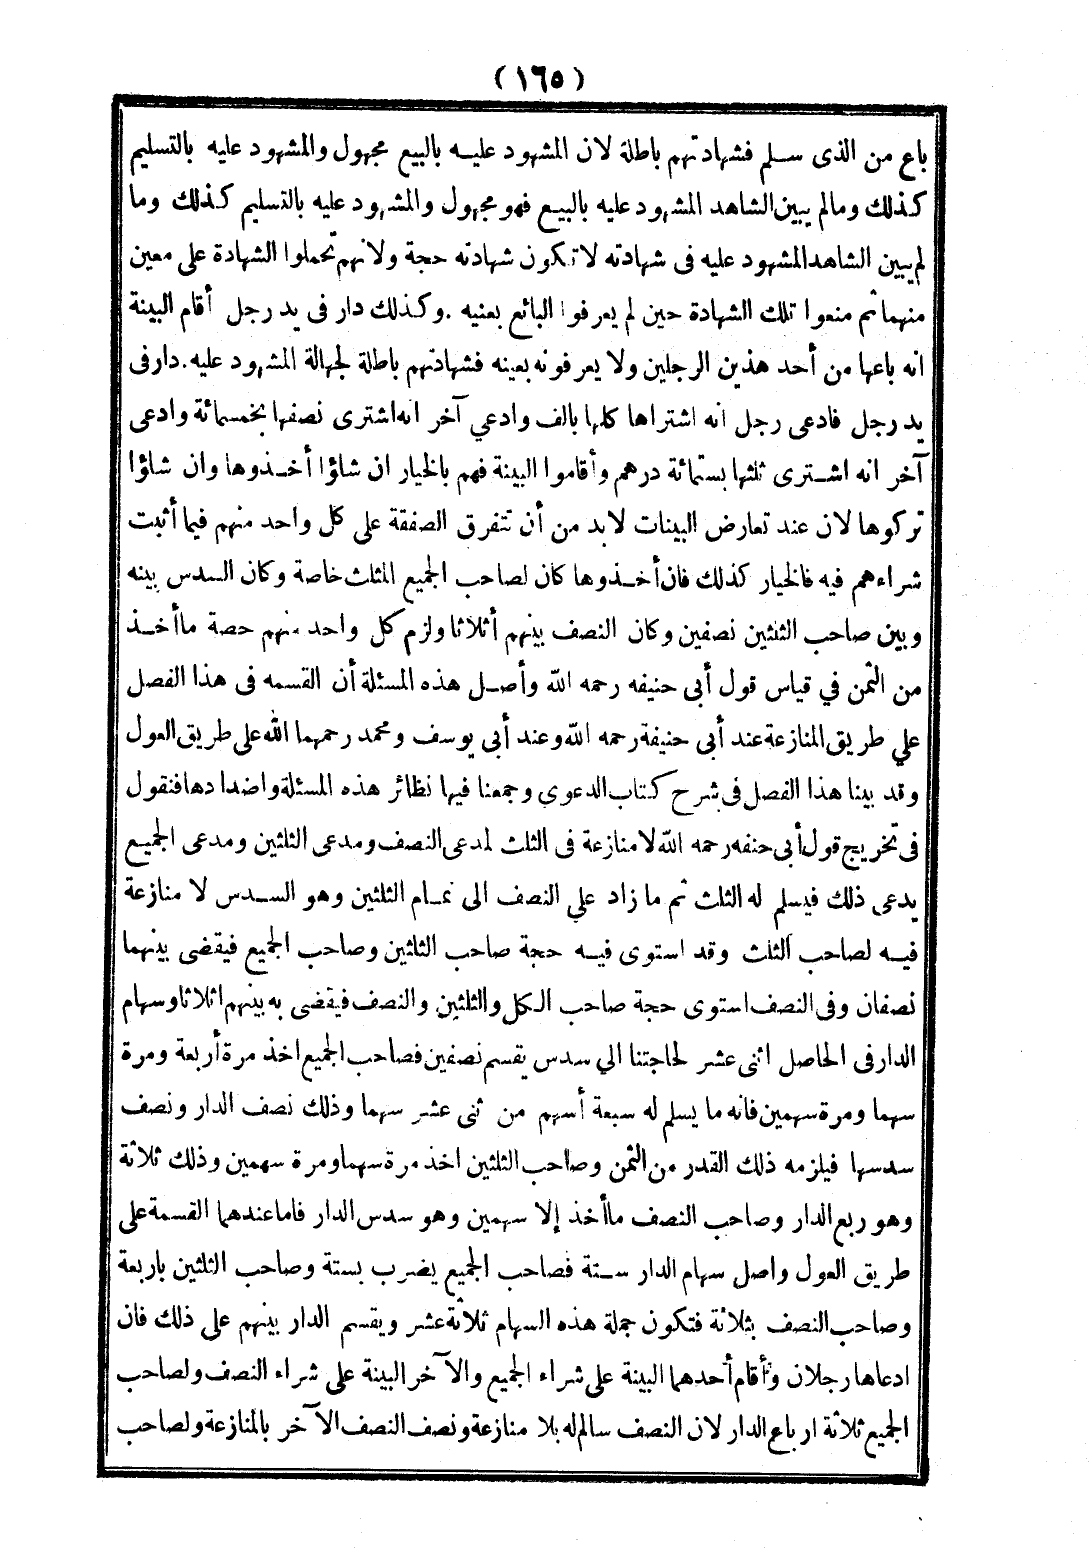 (١٦٥)
باع من الذى سلم فشهادتهم باطلة لان المشهود عليه بالبيع مجهول والمشهود عليه بالتسليم
كذلك وما لم يبين الشاهد المشهود عليه بالبيع فهو مجهول والمشهود عليه بالتسليم كذلك وما
لم يبين الشاهد المشهود عليه فى شهادته لا تكون شهادته حجة ولانهم تحملوا الشهادة على معين
منهما ثم منعوا تلك الشهادة حين لم يعرفوا البائع بعنيه . وكذلك دار فى يد رجل أقام البينة
انه باعها من أحد هذين الرجلين ولا يعرفونه بعينه فشهادتهم باطلة لجهالة المشهود عليه . دار فى
يد رجل فادعى رجل انه اشتراها كلها بالف وادعي آخر انه اشترى نصفها بخمسمائة وادعى
آخر انه اشترى ثلثها بستمائة درهم وأقاموا البينة فهم بالخيار ان شاؤا أخذوها وان شاؤا
تركوها لان عند تعارض البينات لا بد من أن تتفرق الصفقة على كل واحد منهم فيما أثبت
شراءهم فيه فالخيار كذلك فان أخذوها كان لصاحب الجميع المثلث خاصة وكان السدس بينه
وبين صاحب الثلثين نصفين وكان النصف بينهم أثلاثا ولزم كل واحد منهم حصة ما أخذ
من الثمن في قياس قول أبى حنيفه رحمه الله وأصل هذه المسئلة أن القسمه فى هذا الفصل
علي طريق المنازعة عند أبى حنيفة رحمه الله وعند أبى يوسف ومحمد رحمهما الله على طريق العول
وقد بينا هذا الفصل فى شرح كتاب الدعوى وجمعنا فيها نظائر هذه المسئلة واضدادها فنقول
فى تخريج قول أبى حنفه رحمه الله لا منازعة فى الثلث لمدعى النصف ومدعى الثلثين ومدعى الجميع
يدعى ذلك فيسلم له الثلث ثم ما زاد علي النصف الى تمام الثلثين وهو السدس لا منازعة
فيه لصاحب الثلث وقد استوى فيه حجة صاحب الثلثين وصاحب الجميع فيقضى بينهما
نصفان وفى النصف استوى حجة صاحب الكل والثلثين والنصف فيقضى به بينهم اثلاثا وسهام
الدار فى الحاصل اثنى عشر لحاجتنا الي سدس يقسم نصفين فصاحب الجميع اخذ مرة أربعة ومرة
سهما ومرة سهمين فانه ما يسلم له سبعة أسهم من ثنى عشر سهما وذلك نصف الدار ونصف
سدسها فيلزمه ذلك القدر من الثمن وصاحب الثلثين اخذ مرة سهما ومرة سهمين وذلك ثلاثة
وهو ربع الدار وصاحب النصف ما أخذ إلا سهمين وهو سدس الدار فاما عندهما القسمة على
طريق العول واصل سهام الدار ستة فصاحب الجميع يضرب بستة وصاحب الثلثين باربعة
وصاحب النصف بثلاثة فتكون جملة هذه السهام ثلاثة عشر ويقسم الدار بينهم على ذلك فان
ادعاها رجلان وأقام أحدهما البينة على شراء الجميع والآخر البينة على شراء النصف ولصاحب
الجميع ثلاثة ارباع الدار لان النصف سالم له بلا منازعة ونصف النصف الآخر بالمنازعة ولصاحب